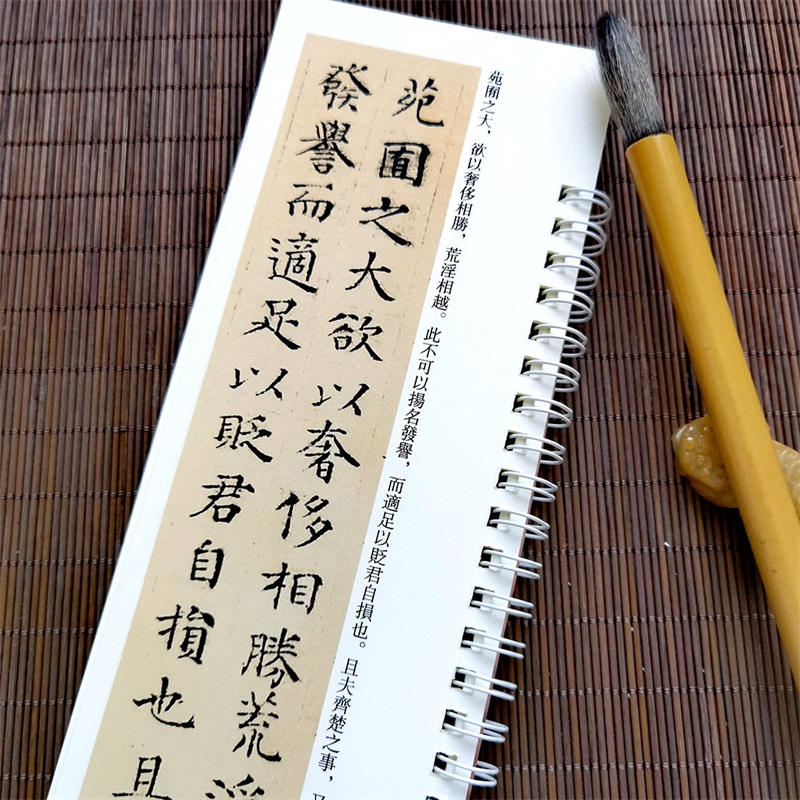 苑囿之大，欲以奢侈相勝，荒淫相越。此不可以揚名發譽，而適足以貶君自損也。且夫齊楚之事，又
苑囿之大欲以奢侈相勝荒淫
發譽而適足以貶君自損也且